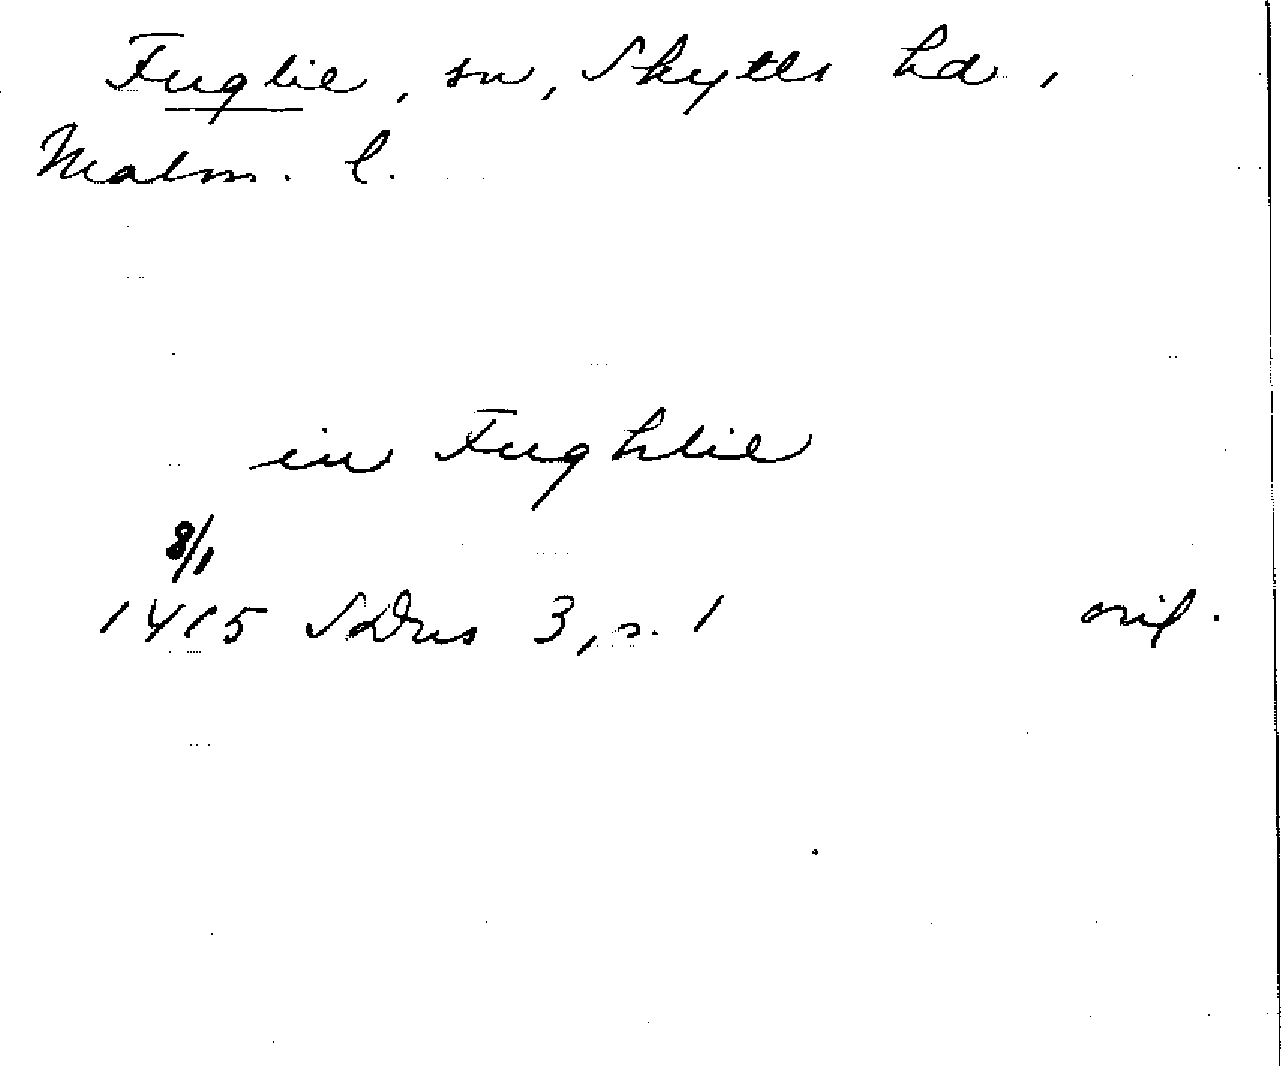 Fuglie, sn, Skytts hd,
Malm. l.
in Fughlie
8/1
1415 SDns 3, s. 1 orig.